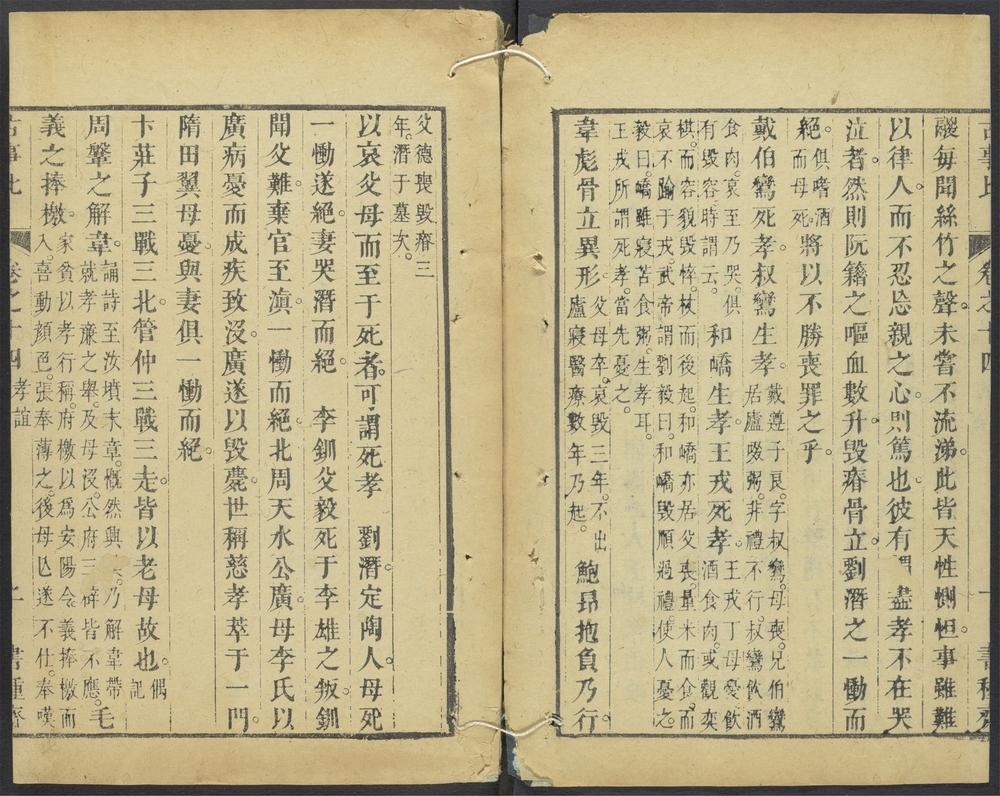 古事比
卷之十四
一
書種齋
馥每聞絲竹之聲未嘗不流涕此皆天性惻怛事雖難
以律人而不忍忘親之心則篤也彼有謂盡孝不在哭
泣者然則阮籍之嘔血數升毀瘠骨立劉潛之一慟而
絕俱嗜酒
而母死將以不勝喪罪之乎
戴伯鸞死孝叔鸞生孝戴遵子良字叔鸞母喪兄伯鸞
居廬啜粥非禮不行叔鸞飲酒
食肉哀至乃哭俱
有毀容時謂云和嶠生孝王戎死孝王戎丁母憂飲
酒食肉或觀奕
棋而容貌毀悴杖而後起和嶠亦居父喪量米而食而
哀不踰于戎武帝謂劉毅曰和嶠毀順過禮使人憂之
毅曰嶠雖寢苫食粥生孝耳
王戎所謂死孝當先憂之
韋彪骨立異形父母卒哀毀三年不出
廬寢醫療數年乃起鮑昂抱負乃行
父德喪毀瘠三
年潛于墓次
以哀父母而至于死者可謂死孝 劉潛定陶人母死
一慟遂絕妻哭潛而絕 李釧父毅死于李雄之叛釧
聞父難棄官至滇一慟而絕北周天水公廣母李氏以
廣病憂而成疾致沒廣遂以毀薨世稱慈孝萃于一門
隋田翼母憂與妻俱一慟而絕
卞莊子三戰三北管仲三戰三走皆以老母故也偶
記
周磐之解韋誦詩至汝墳末章慨然興乃解韋帶
就孝廉之舉及母沒公府三辟皆不應毛
義之捧檄家貧以孝行稱府檄以爲安陽令義捧檄而
入喜動顏色張奉薄之後母亾遂不仕奉嘆
古事比
卷之十四
孝誼
二
書種齋